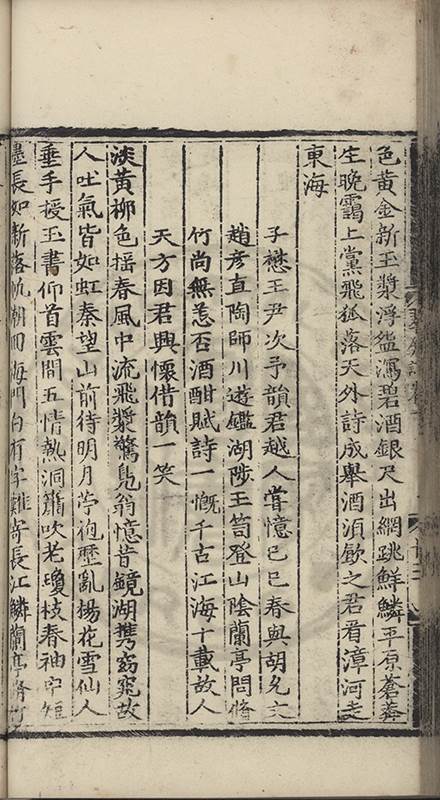 色黄金新玉漿浮鑑瀉碧酒銀尺出網跳鮮鱗平原蒼莽
生晚靄上黨飛狐落天外詩成舉酒須飲之君看漳河走
東海
子懋王尹次予韻君越人嘗憶已巳春與胡允文
趙彦直陶師川遊鑑湖陟王笥登山陰蘭亭問脩
竹尚無恙否酒酣賦詩一慨千古江海十載故人
天方因君興懷借韻一笑
淡黄柳色揺春風中流飛槳驚鳧翁憶昔鏡湖携窈窕故
人吐氣皆如虹秦望山前待明月苧袍歷亂楊花雪仙人
垂手授玉書仰首雲間五情熱洞簫吹老瓊枝春袖中短
墨長如新落帆潮回海門白有字難寄長江鱗蘭亭脩竹